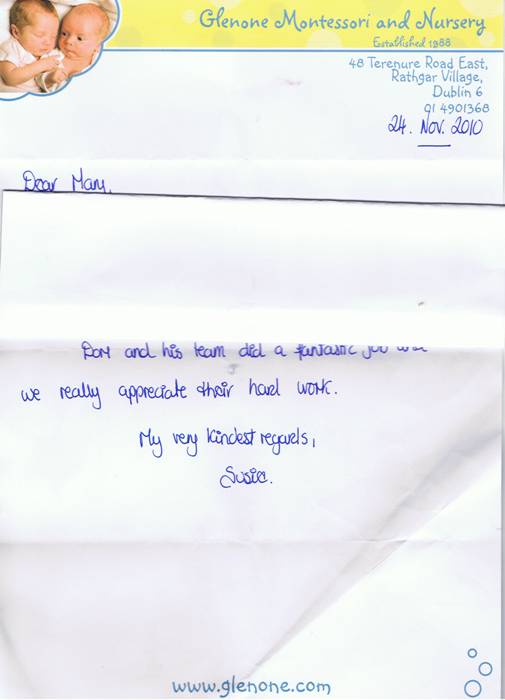 Glenone Montessori and Nursery
Established 1988
48 Terenure Road East,
Rathgar Village,
Dublin 6
01 4901368
24. Nov. 2010
Dear Mary,
and his team did a fantastic job
we really appreciate their hard work.
My very kindest regards,
Susie.
www.glenone.com